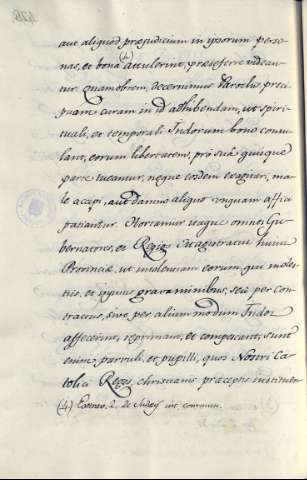 aut aliquod præjudicium in ipsorum perso-
nas, et bona (4) attulerint, præseferre videan-
tur. Quamobrem decernimus Parochis præci-
puam curam in id adhibendam, ut spiri-
tuali, et temporali Indorum bono consu-
lant, eorum libertatem, pro sua quisque
parte tueantur, neque eosdem vexari, ma-
le accipi, aut damno aliquo unquam affici
patiantur. Obortamur itaque omnes Gu-
bernatores, et Regios Magistratus hujus
Provinciæ, ut insolentiam eorum, qui moles-
tiis, et ipsius gravaminibus, seu per con-
tractus, sive per alium modum Indos
affecerint, reprimant, et compescant, sunt
enim parvuli, et pupilli, quos Nostri Ca-
tolici Reges, christianis præceptis instituen-
(4) Extrav. 2. de Judæis int. commun.